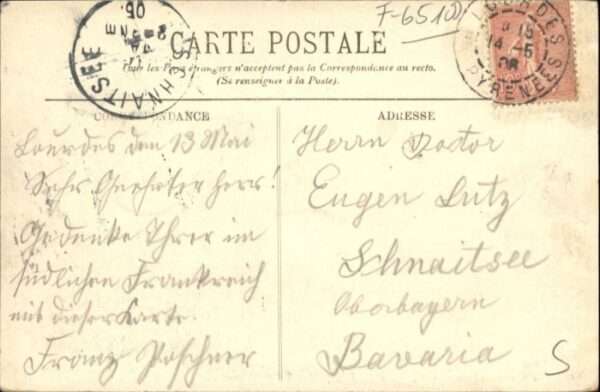 F-6510
CARTE POSTALE
Tous les Pays étrangers n'acceptent pas la Correspondance au recto.
(Se renseigner à la Poste).
SCHNAITSEE
05.
LOURDES
14 -5
PYRENEES
CORRESPONDANCE
ADRESSE
Lourdes den 13 Mai
Sehr Geehrter Herr!
Gedenke Ihrer im
südlichen Frankreich
mit dieser Karte.
Franz Poschner
Herrn Doctor
Eugen Lutz
Schnaitsee
Oberbayern
Bavaria
S